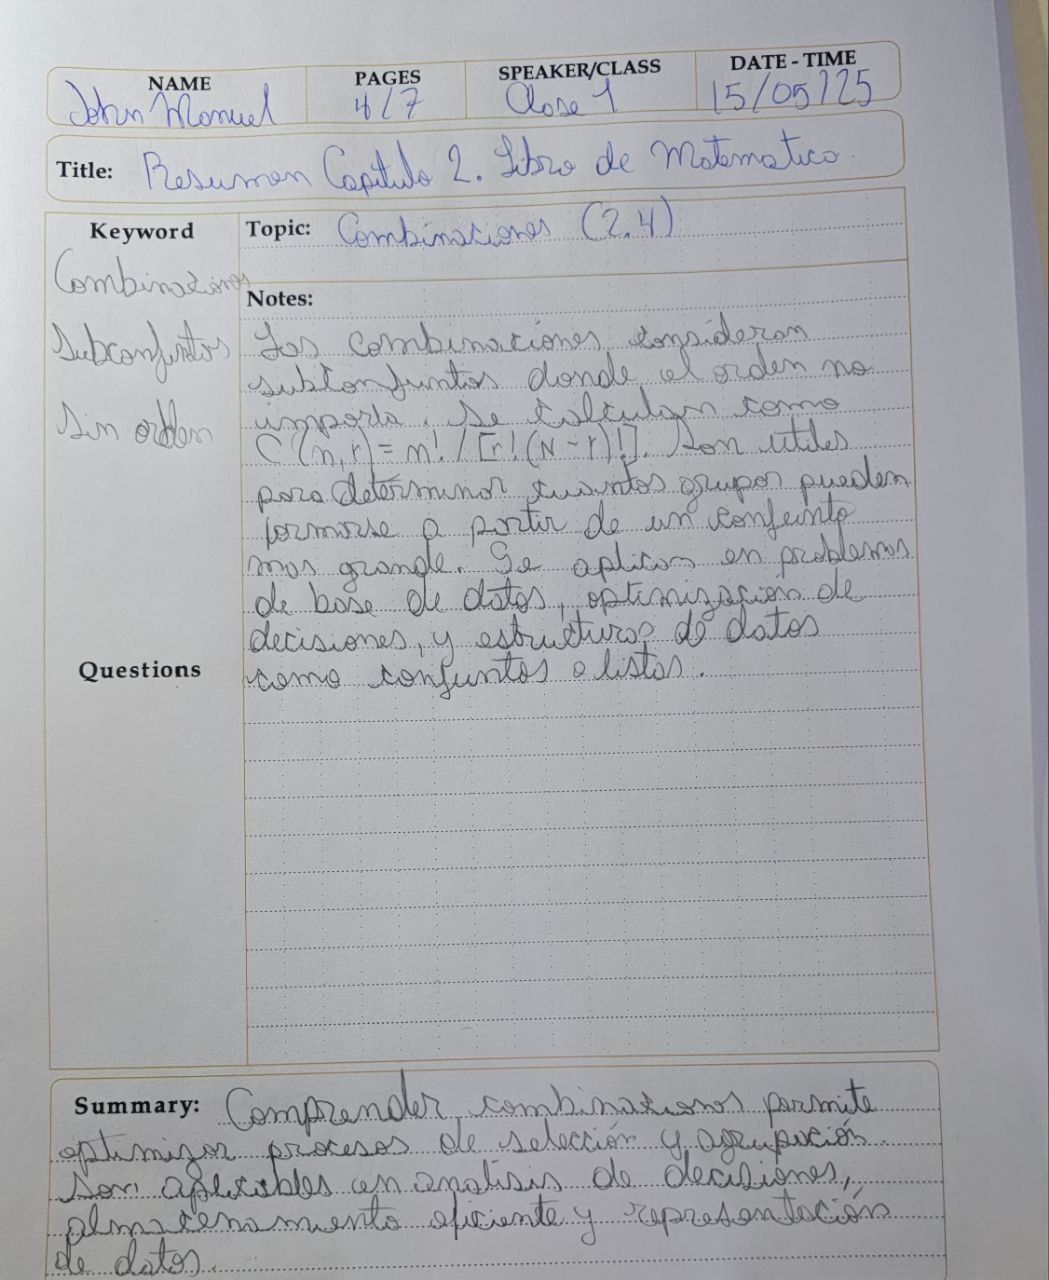 NAME PAGES SPEAKER/CLASS DATE - TIME
John Manuel 4/7 Clase 1 15/05/25
Title: Resumen Capitulo 2. Libro de Matematica
Keyword
Topic: Combinaciones (2.4)
Combinaciones
Subconjuntos
Sin orden
Notes:
Las combinaciones consideran
subconjuntos donde el orden no
importa. Se calculan como
C(n,r) = n! / [r!(N-r)!]. Son utiles
para determinar cuantos grupos pueden
formarse a partir de un conjunto
mas grande. Se aplican en problemas
de base de datos, optimización de
decisiones, y estructuras de datos
como conjuntos o listas.
Questions
Summary: Comprender combinaciones permite
optimizar procesos de selección y agrupación
Son aplicables en analisis de decisiones,
almacenamiento eficiente y representación
de datos.